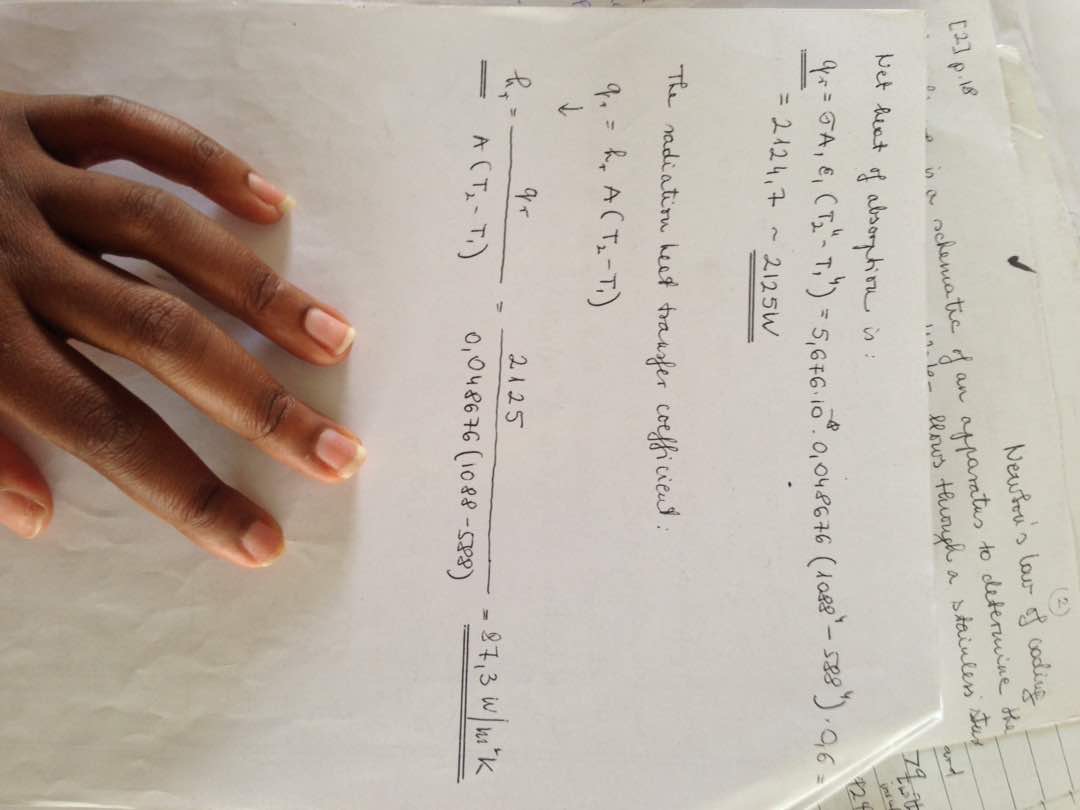 (2)
Newton's law of cooling
[2] p.18
is a schematic of an apparatus to determine the
flows through a stainless steel
and
Net heat of absorption is:
qr = σA₁ε₁(T₂⁴-T₁⁴) = 5,676.10⁻⁸.0,048676(1088⁴-588⁴).0,6 =
= 2124,7 ~ 2125W
The radiation heat transfer coefficient:
qr = hr A(T₂-T₁)
↓
hr = qr / A(T₂-T₁) = 2125 / 0,048676(1088-588) = 87,3 W/m²K